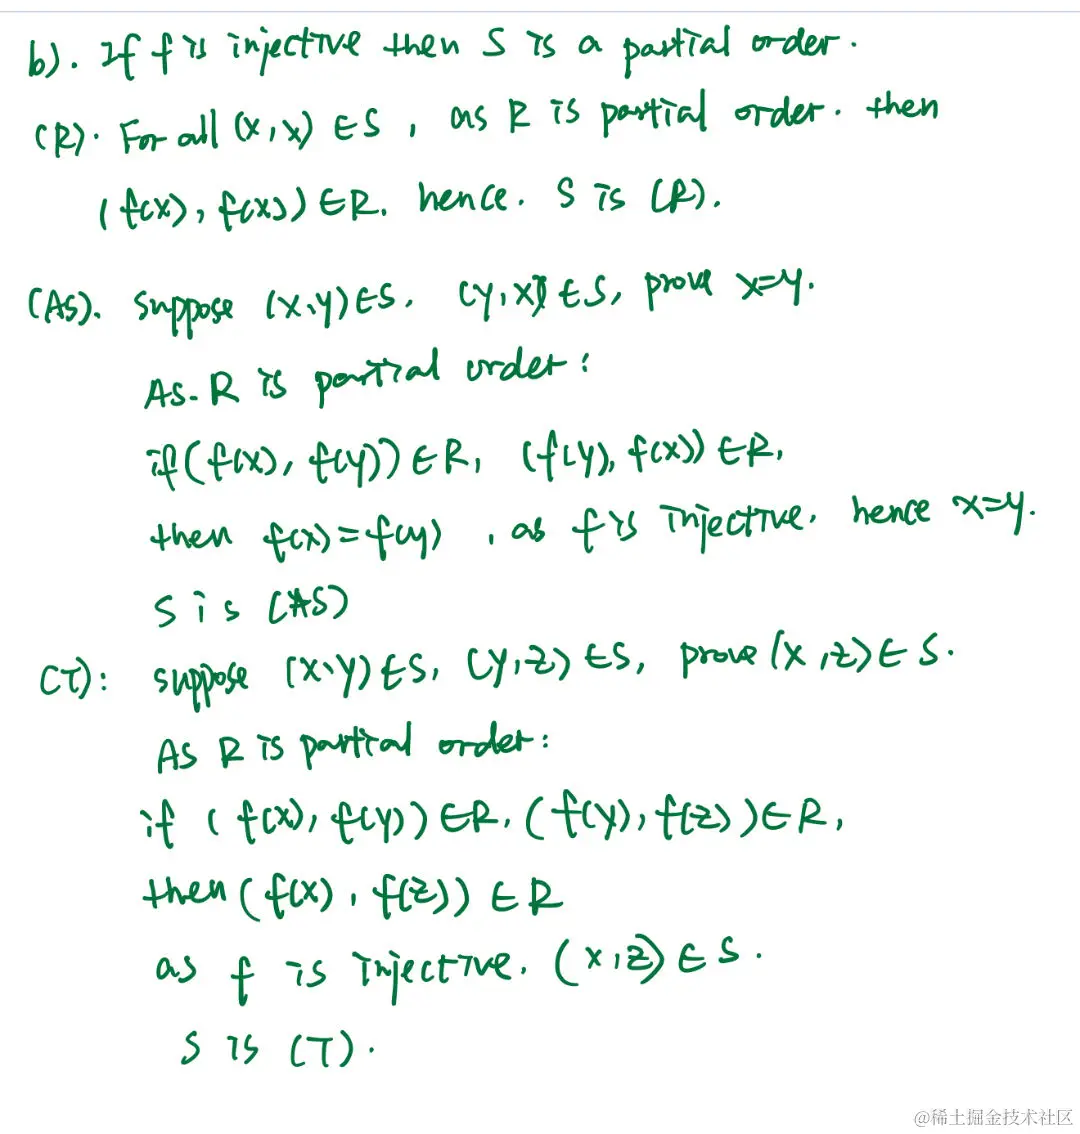 b). If f is injective then S is a partial order.
(R). For all (x,x) ∈ S, as R is partial order. then
(f(x), f(x)) ∈ R. hence. S is (R).
(AS). Suppose (x,y) ∈ S, (y,x) ∈ S, prove x=y.
As R is partial order:
if (f(x), f(y)) ∈ R, (f(y), f(x)) ∈ R,
then f(x) = f(y), as f is injective. hence x=y.
S is (AS)
(T): suppose (x,y) ∈ S, (y,z) ∈ S, prove (x,z) ∈ S.
As R is partial order:
if (f(x), f(y)) ∈ R. (f(y), f(z)) ∈ R,
then (f(x), f(z)) ∈ R
as f is injective. (x,z) ∈ S.
S is (T).
@稀土掘金技术社区